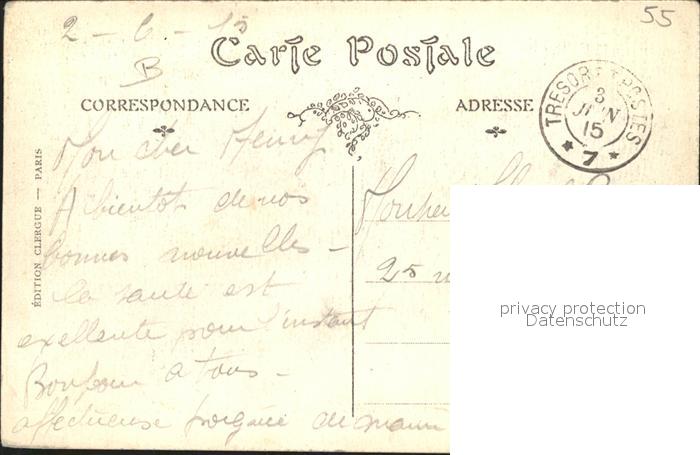 55
2 - 6 - 15
B
Carte Postale
CORRESPONDANCE
ADRESSE
TRESOR ET POSTES
3
JUIN
15
* 7 *
ÉDITION CLERGUE — PARIS
Mon cher Henry
A bientôt de nos
bonnes nouvelles —
la santé est
exellente pour l'instant
Bonjour à tous —
affectueuse poignée de main
25
privacy protection
Datenschutz